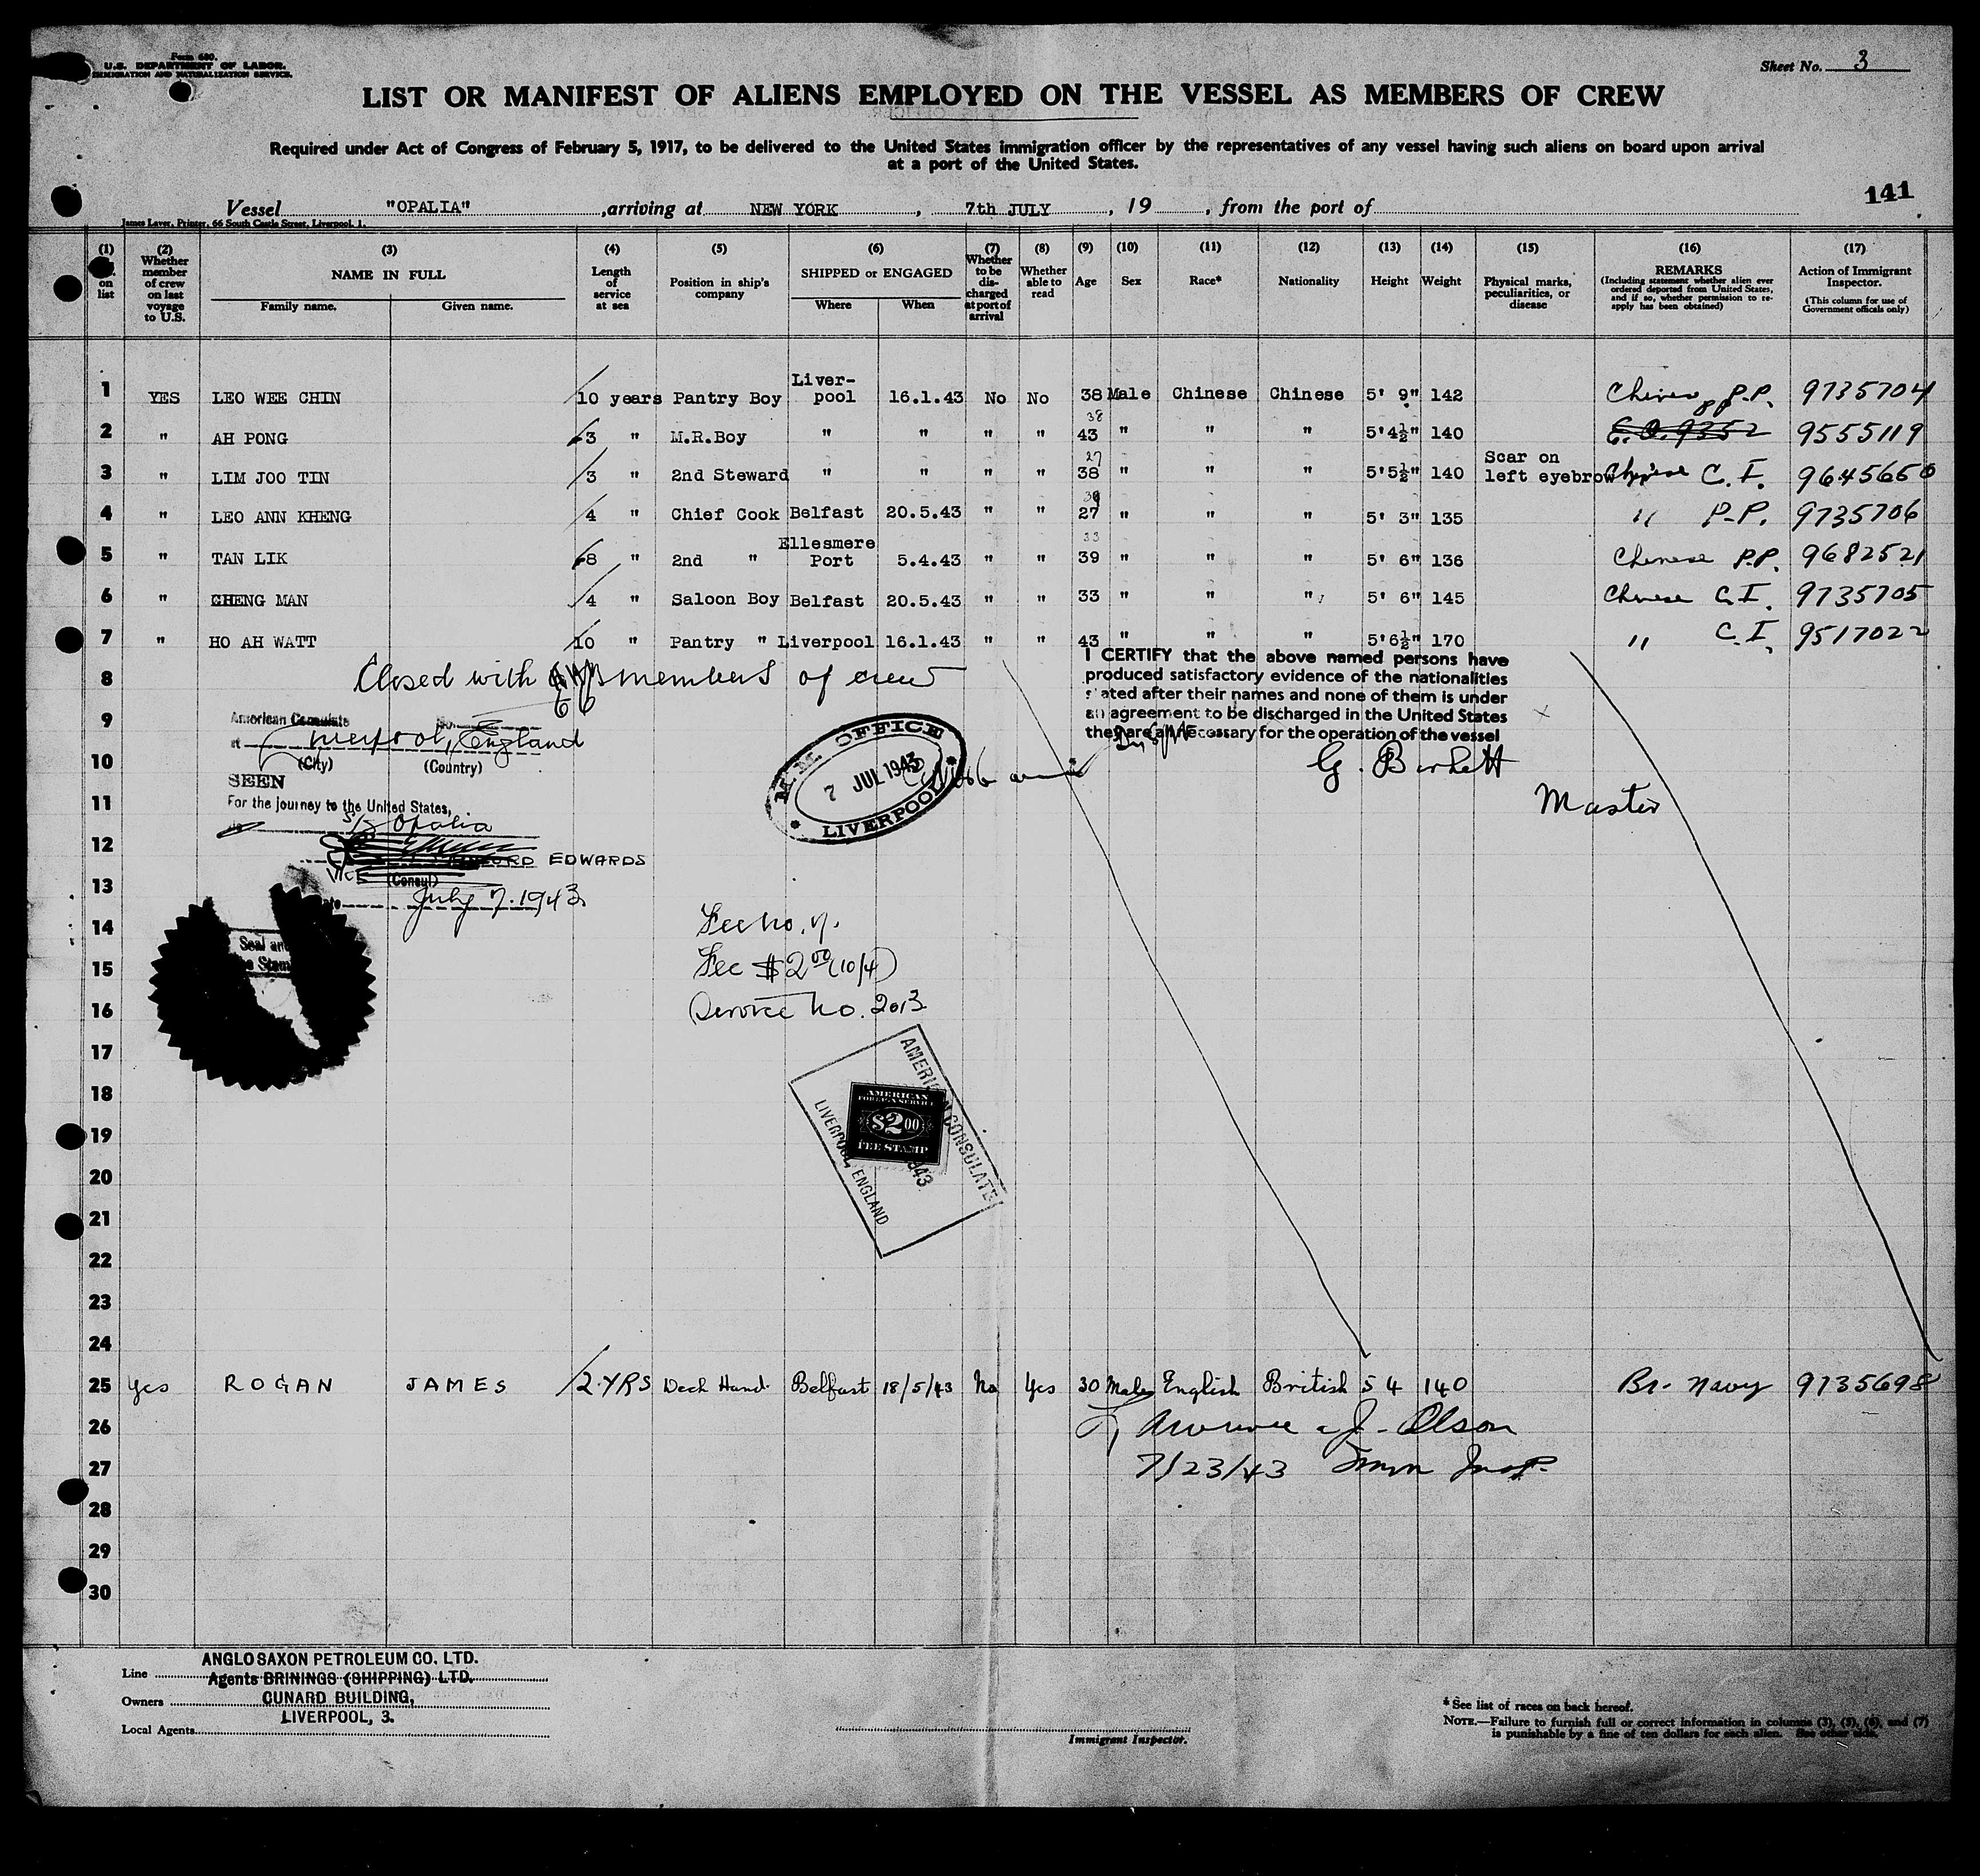 Form 680.
U.S. DEPARTMENT OF LABOR.
IMMIGRATION AND NATURALIZATION SERVICE.
Sheet No. 3
LIST OR MANIFEST OF ALIENS EMPLOYED ON THE VESSEL AS MEMBERS OF CREW
Required under Act of Congress of February 5, 1917, to be delivered to the United States immigration officer by the representatives of any vessel having such aliens on board upon arrival
at a port of the United States.
141
Vessel "OPALIA" , arriving at NEW YORK , 7th JULY , 19 , from the port of
James Laver, Printer, 66 South Castle Street, Liverpool. 1.
(1) (2) (3) (4) (5) (6) (7) (8) (9) (10) (11) (12) (13) (14) (15) (16) (17)
on list
Whether member of crew on last voyage to U.S.
NAME IN FULL
Family name. Given name.
Length of service at sea
Position in ship's company
SHIPPED or ENGAGED
Where When
Whether to be discharged at port of arrival
Whether able to read
Age Sex Race* Nationality Height Weight
Physical marks, peculiarities, or disease
REMARKS
(Including statement whether alien ever ordered deported from United States, and if so, whether permission to re-apply has been obtained)
Action of Immigrant Inspector.
(This column for use of Government officials only)
1 YES LEO WEE CHIN 10 years Pantry Boy Liver-pool 16.1.43 No No 38 Male Chinese Chinese 5' 9" 142 Chinese P.P. 9735704
38
2 " AH PONG 3 " M.R.Boy " " " " 43 " " " 5'4½" 140 9555119
27
3 " LIM JOO TIN 3 " 2nd Steward " " " " 38 " " " 5'5½" 140 Scar on left eyebrow Chinese C.I. 9645650
4 " LEO ANN KHENG 4 " Chief Cook Belfast 20.5.43 " " 27 " " " 5' 3" 135 " P.P. 9735706
33
5 " TAN LIK 8 " 2nd " Ellesmere Port 5.4.43 " " 39 " " " 5' 6" 136 Chinese P.P. 9682521
6 " CHENG MAN 4 " Saloon Boy Belfast 20.5.43 " " 33 " " " 5' 6" 145 Chinese C.I. 9735705
7 " HO AH WATT 10 " Pantry " Liverpool 16.1.43 " " 43 " " " 5'6½" 170 " C.I. 9517022
8 Closed with 66 members of crew
I CERTIFY that the above named persons have
produced satisfactory evidence of the nationalities
stated after their names and none of them is under
an agreement to be discharged in the United States
they are all necessary for the operation of the vessel
9 American Consulate No.
at Liverpool, England
10 (City) (Country)
SEEN
11 For the journey to the United States,
S/S Opalia
12 EDWARDS
VICE (Consul)
13 July 7. 1943
M.M. OFFICE
7 JUL 1943
LIVERPOOL
G. Birkett
Master
14 Fee No. 7.
Seal and
Fee Stamp
15 Fee $2.00 (10/4)
16 Service No. 2013
17
18
AMERICAN CONSULATE
LIVERPOOL, ENGLAND
AMERICAN
FOREIGN SERVICE
$2.00
FEE STAMP
1943
19
20
21
22
23
24
25 Yes ROGAN JAMES 2 YRS Deck Hand Belfast 18/5/43 No Yes 30 Male English British 5 4 140 Br. Navy 9735698
26 Lawrence J. Olson
27 7/23/43 Immn Insp.
28
29
30
ANGLO SAXON PETROLEUM CO. LTD.
Line Agents BRININGS (SHIPPING) LTD.
Owners CUNARD BUILDING,
LIVERPOOL, 3.
Local Agents
Immigrant Inspector.
* See list of races on back hereof.
NOTE.—Failure to furnish full or correct information in columns (3), (5), (6), and (7)
is punishable by a fine of ten dollars for each alien. See other side.